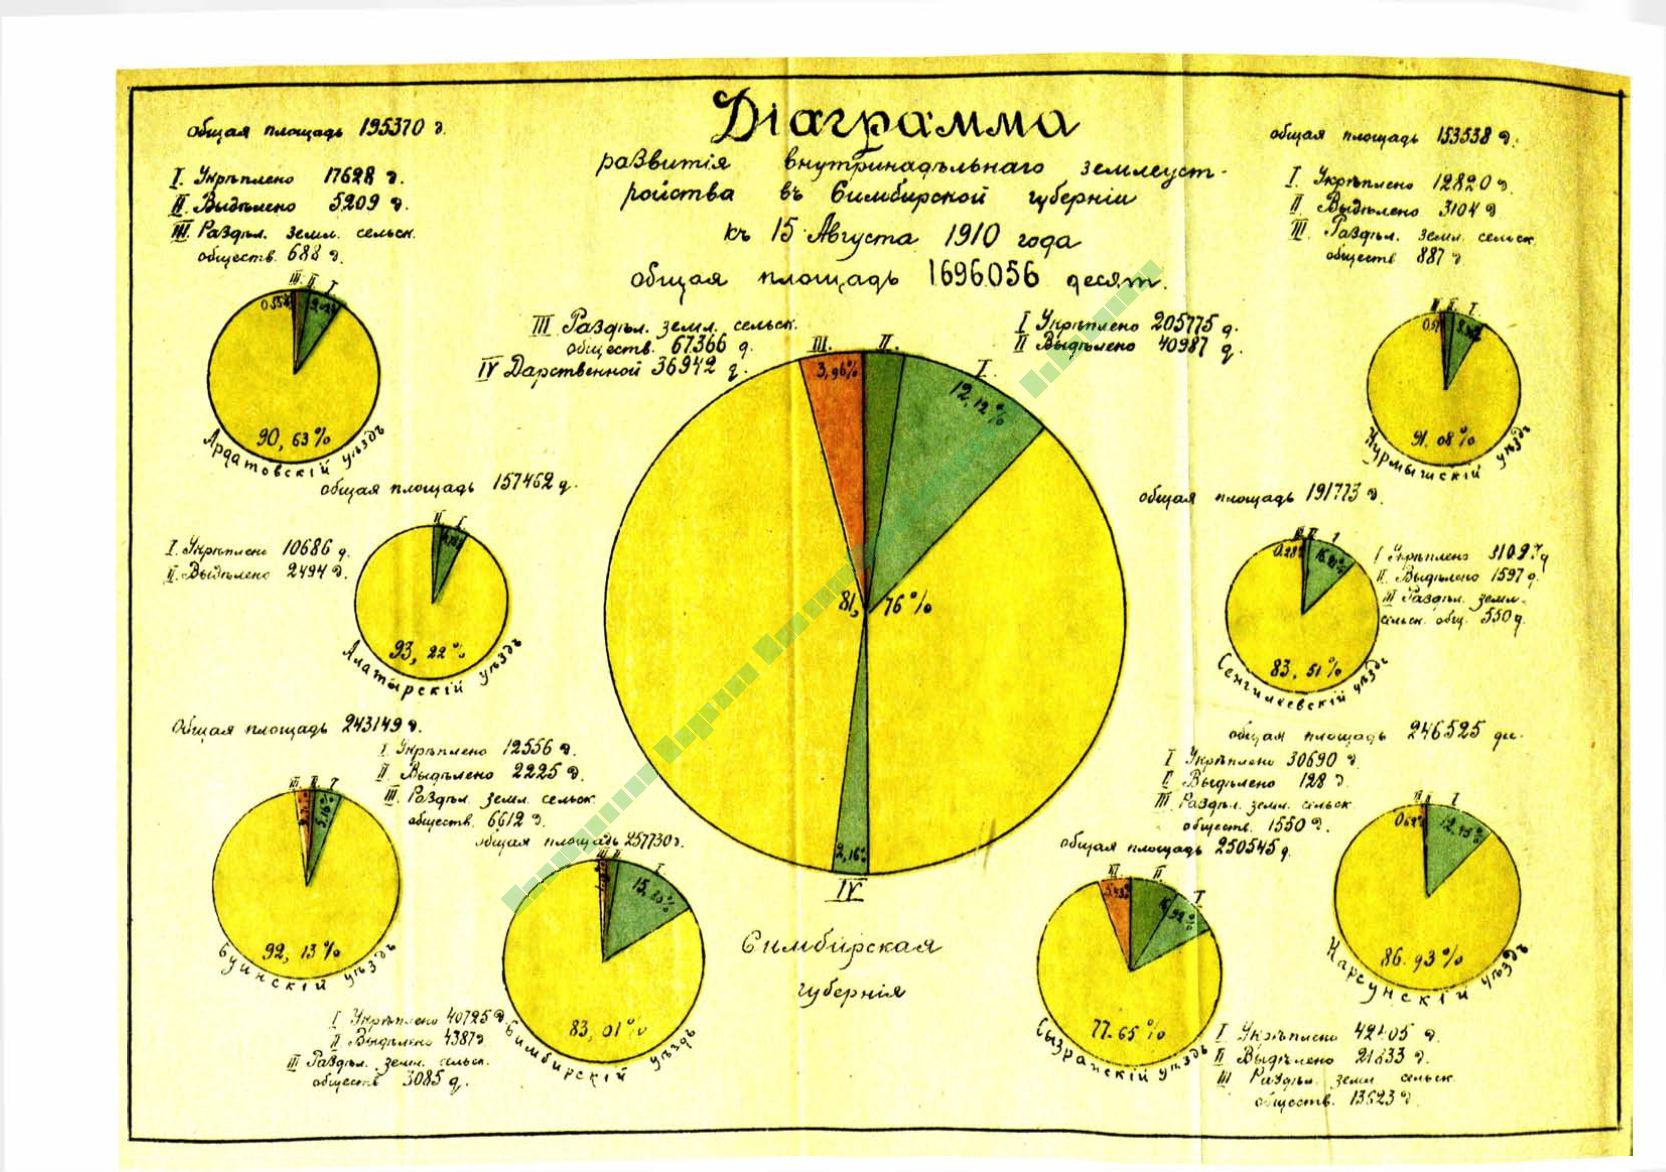 Діаграмма
развитія внутринадѣльнаго землеуст-
ройства въ Симбирской губерніи
къ 15 Августа 1910 года
общая площадь 1696056 десят.
III Раздѣл. земл. сельск.
обществ. 67366 д.
IV Дарственной 36942 д.
I Укрѣплено 205775 д.
II Выдѣлено 40987 д.
III. II. I.
3,96% 12,12%
81,76%
2,16%
IV
Симбирская
губернія
общая площадь 195370 д.
I. Укрѣплено 17628 д.
II. Выдѣлено 5209 д.
III. Раздѣл. земл. сельск.
обществ. 688 д.
III II I
90,63%
Ардатовскій уѣздъ
общая площадь 157462 д.
I. Укрѣплено 10686 д.
II. Выдѣлено 2494 д.
II I
93,22%
Алатырскій уѣздъ
Общая площадь 243149 д.
I. Укрѣплено 12556 д.
II. Выдѣлено 2225 д.
III. Раздѣл. земл. сельск.
обществ. 6612 д.
III II I
5,16%
92,13%
Буинскій уѣздъ
общая площадь 257730 д.
III II I
83,01%
Симбирскій уѣздъ
I Укрѣплено 40725 д.
II Выдѣлено 4387 д.
III Раздѣл. земл. сельск.
обществ. 3085 д.
общая площадь 153538 д.
I. Укрѣплено 12820 д.
II. Выдѣлено 3104 д.
III. Раздѣл. земл. сельск.
обществ 887 д.
II I
91.08%
Курмышскій уѣздъ
общая площадь 191773 д.
I Укрѣплено
II. Выдѣлено 1597 д.
III Раздѣл. земл.
сельск. общ. 550 д.
III II I
0.28%
83,51%
Сенгилеевскій уѣздъ
общая площадь 246525 дес.
I Укрѣплено 30690 д.
II Выдѣлено 128 д.
III Раздѣл. земл. сельск.
обществ. 1550 д.
III II I
86.93%
Карсунскій уѣздъ
общая площадь 250545 д.
III. II. I
77.65%
Сызранскій уѣздъ
I Укрѣплено
II Выдѣлено
III Раздѣл. земл сельск.
обществ. 13623 д.